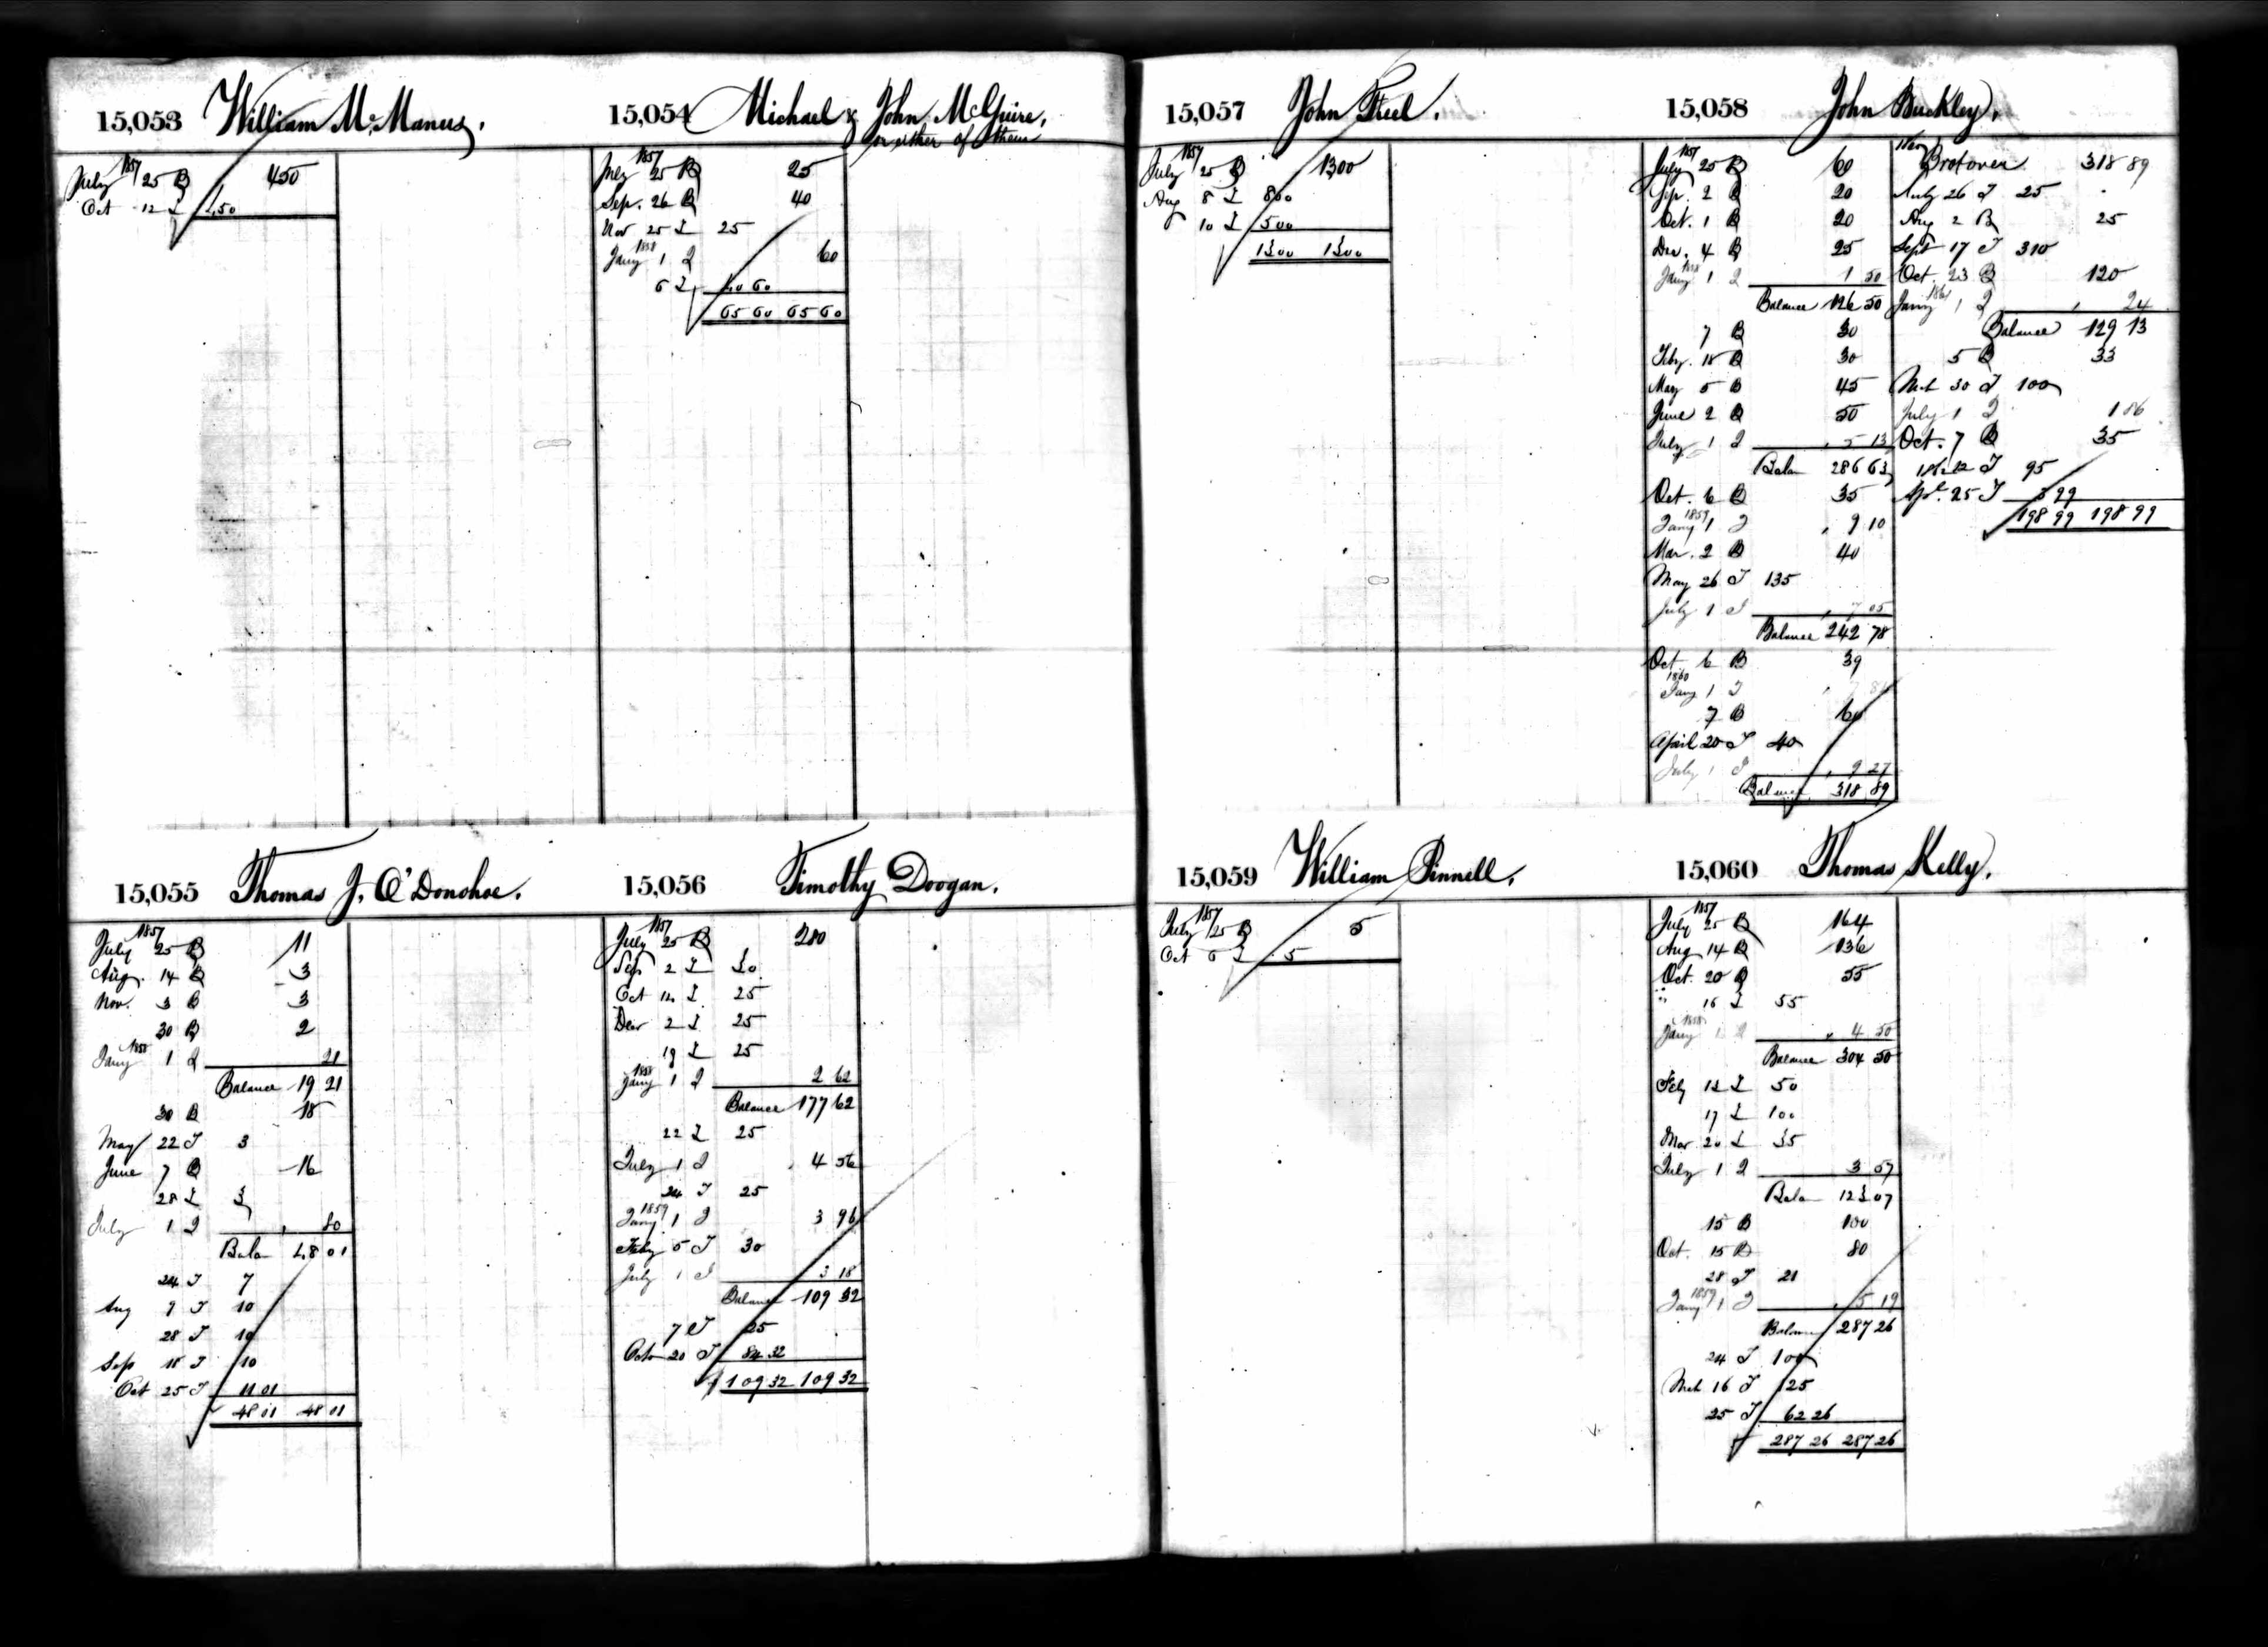 15,053 William McManus.
1857
July 25 B 450
Oct 12 I 450
15,054 Michael & John McGuire,
or either of them
1857
July 25 B 25
Sep. 26 B 40
Nov 25 I 25
1858
Jany 1 I 60
6 I 40 60
65 60 65 60
15,055 Thomas J. O'Donohoe.
1857
July 25 B 11
Aug. 14 B 3
Nov. 3 B 3
30 B 2
1858
Jany 1 I 21
Balance 19 21
30 B 18
May 22 I 3
June 7 B 16
28 I 3
July 1 I , 80
Balan 48 01
24 I 7
Aug 9 I 10
28 I 10
Sep 18 I 10
Oct 25 I 11 01
48 01 48 01
15,056 Timothy Doogan.
1857
July 25 B 280
Sep 2 I 30
Oct 12 I 25
Decr 2 I 25
19 I 25
1858
Jany 1 I 2 62
Balance 177 62
22 I 25
July 1 I 4 56
24 I 25
1859
Jany 1 I 3 96
Feby 5 I 30
July 1 I 3 18
Balance 109 32
7 I 25
Octo 20 I 84 32
109 32 109 32
15,057 John Freel.
1857
July 25 B 1300
Aug 8 I 800
10 I 500
1300 1300
15,058 John Buckley.
1857
July 25 B 60
Sep. 2 B 20
Oct. 1 B 20
Dec. 4 B 25
1858
Jany 1 I 1 50
Balance 126 50
7 B 30
Feby. 18 B 30
May 5 B 45
June 2 B 50
July 1 I , 5 13
Balan 286 63
Oct. 6 B 35
1859
Jany 1 I , 9 10
Mar. 2 B 40
May 26 I 135
July 1 I , 7 05
Balance 242 78
Oct. 6 B 39
1860
Jany 1 I
7 B 60
April 20 I 40
July 1 I , 9 27
Balance 318 89
1860
Brot over 318 89
July 26 I 25
Aug 2 B 25
Sept 17 I 310
Oct. 23 B 120
1861
Jany 1 I , 24
Balance 129 13
5 B 33
Mch 30 I 100
July 1 I 1 86
Oct. 7 B 35
1862 I 95
Apl. 25 I 3 99
198 99 198 99
15,059 William Pinnell.
1857
July 25 B 5
Oct 6 I 5
15,060 Thomas Kelly.
1857
July 25 B 164
Aug 14 B 136
Oct. 20 B 55
" 16 I 55
1858
Jany 1 I , 4 50
Balance 304 50
Feby 12 I 50
17 I 100
Mar 20 I 35
July 1 I 3 57
Balan 123 07
15 B 100
Oct. 15 B 80
28 I 21
1859
Jany 1 I , 5 19
Balance 287 26
24 I 100
Mch 16 I 125
25 I 62 26
287 26 287 26